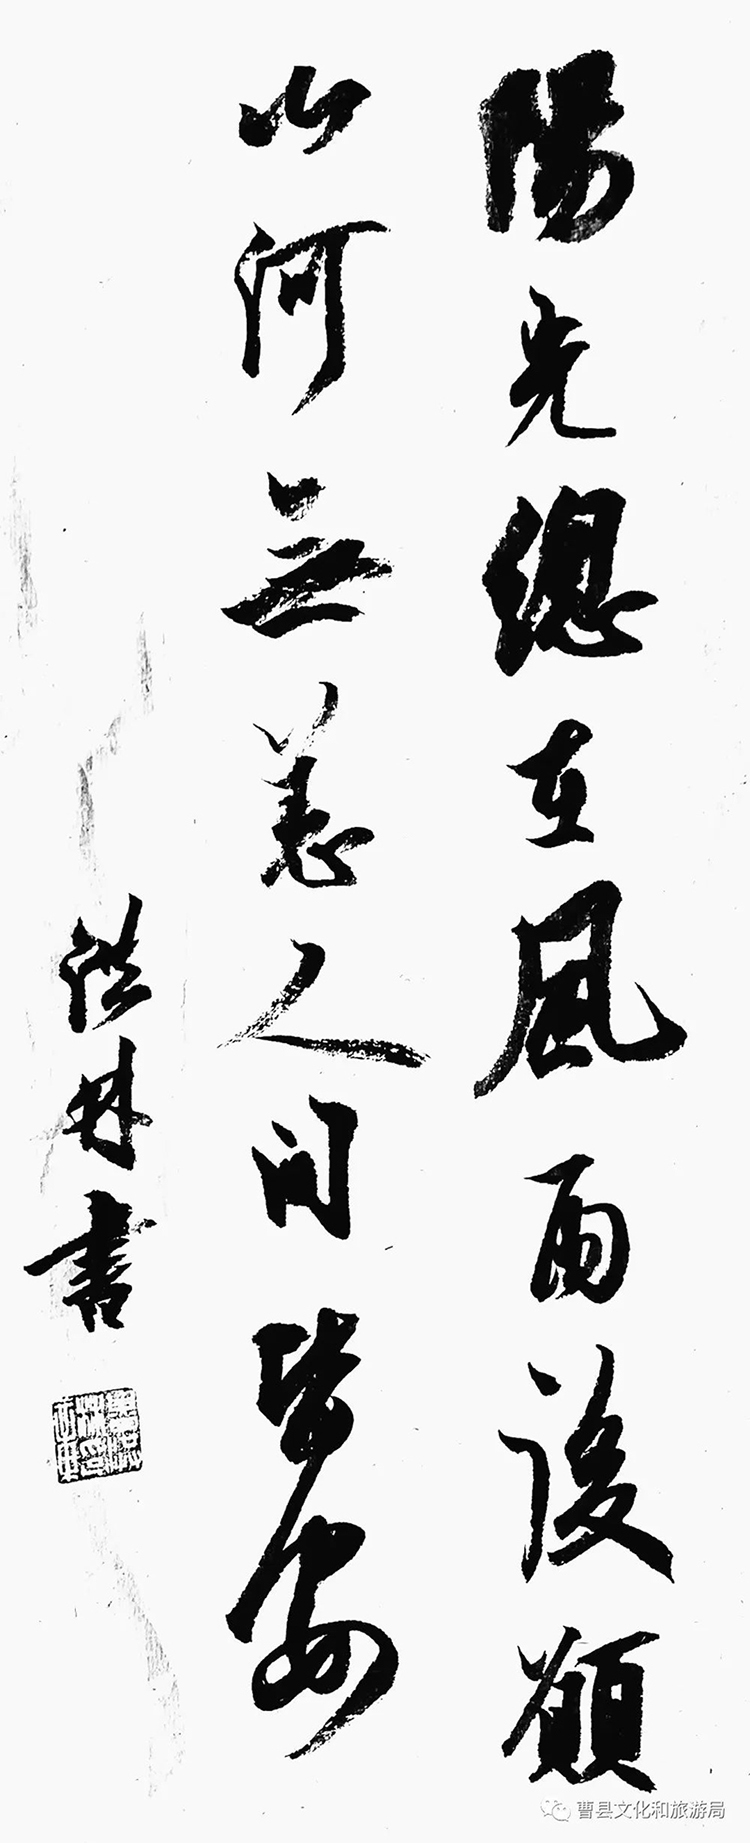 陽光總在風雨後願
山河無恙人间皆安
洪林書
曹县文化和旅游局